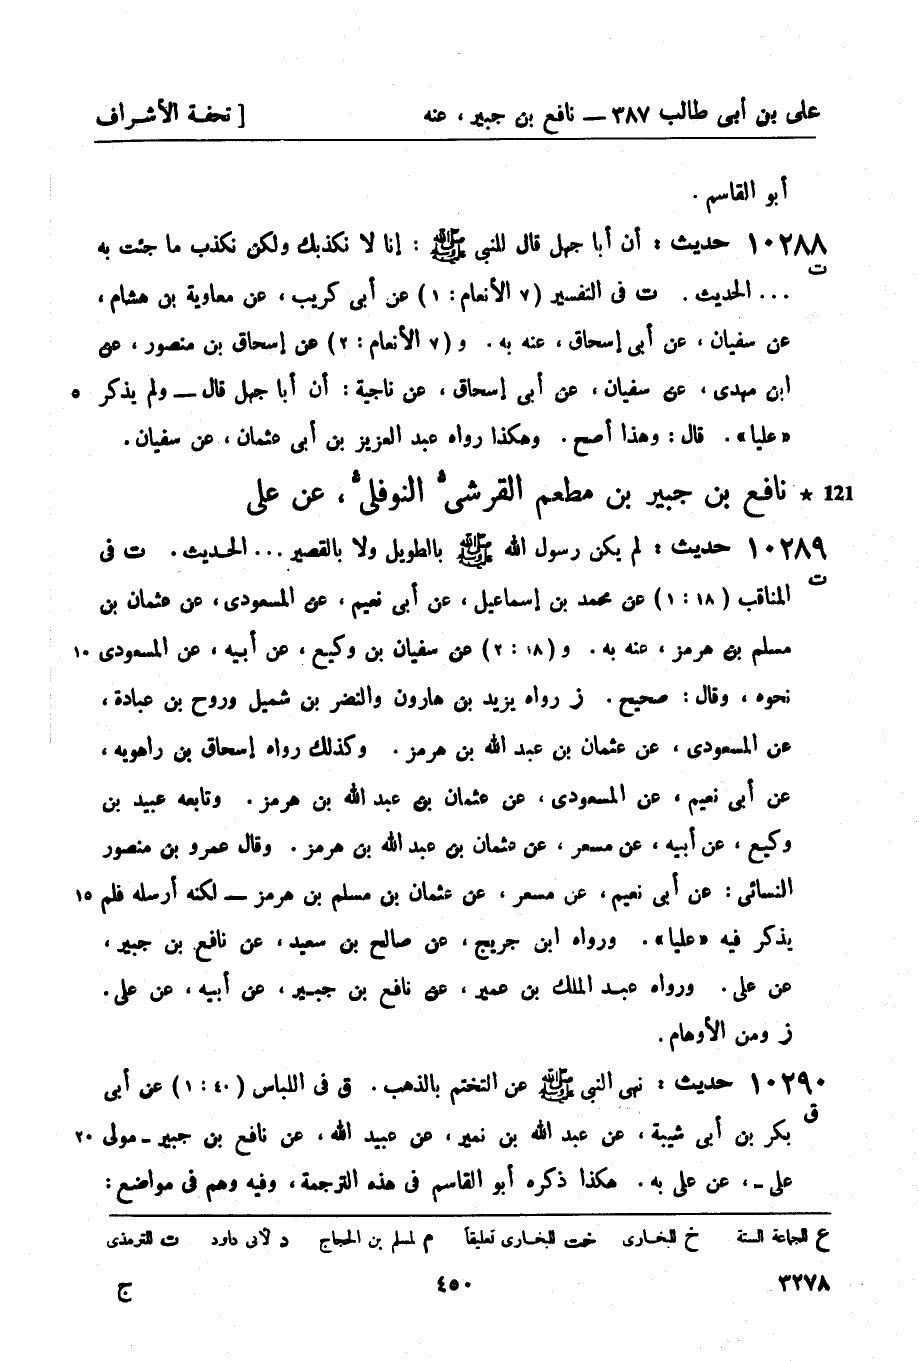 على بن أبى طالب ٣٨٧ — نافع بن جبير ، عنه [ تحفة الأشراف
أبو القاسم .
١٠٢٨٨ حديث : أن أبا جهل قال للنبى ﷺ : إنا لا نكذبك ولكن نكذب ما جئت به
ت ... الحديث . ت فى التفسير (٧ الأنعام : ١) عن أبى كريب ، عن معاوية بن هشام ،
عن سفيان ، عن أبى إسحاق ، عنه به . و (٧ الأنعام : ٢) عن إسحاق بن منصور ، عن
ابن مهدى ، عن سفيان ، عن أبى إسحاق ، عن ناجية : أن أبا جهل قال — ولم يذكر ٥
«عليا» . قال : وهذا أصح . وهكذا رواه عبد العزيز بن أبى عثمان ، عن سفيان .
121 ★ نافع بن جبير بن مطعم القرشىُّ النوفلىُّ ، عن على
١٠٢٨٩ حديث : لم يكن رسول الله ﷺ بالطويل ولا بالقصير ... الحديث . ت فى
ت المناقب (١٨ : ١) عن محمد بن إسماعيل ، عن أبى نعيم ، عن المسعودى ، عن عثمان بن
مسلم بن هرمز ، عنه به . و (١٨ : ٢) عن سفيان بن وكيع ، عن أبيه ، عن المسعودى ١٠
نحوه ، وقال : صحيح . ز رواه يزيد بن هارون والنضر بن شميل وروح بن عبادة ،
عن المسعودى ، عن عثمان بن عبد الله بن هرمز . وكذلك رواه إسحاق بن راهويه ،
عن أبى نعيم ، عن المسعودى ، عن عثمان بن عبد الله بن هرمز . وتابعه عبيد بن
وكيع ، عن أبيه ، عن مسعر ، عن عثمان بن عبد الله بن هرمز . وقال عمرو بن منصور
النسائى : عن أبى نعيم ، عن مسعر ، عن عثمان بن مسلم بن هرمز — لكنه أرسله فلم ١٥
يذكر فيه «عليا» . ورواه ابن جريج ، عن صالح بن سعيد ، عن نافع بن جبير ،
عن على . ورواه عبد الملك بن عمير ، عن نافع بن جبير ، عن أبيه ، عن على .
ز ومن الأوهام .
١٠٢٩٠ حديث : نهى النبى ﷺ عن التختم بالذهب . ق فى اللباس (٤٠ : ١) عن أبى
ق بكر بن أبى شيبة ، عن عبد الله بن نمير ، عن عبيد الله ، عن نافع بن جبير - مولى ٢٠
على - ، عن على به . هكذا ذكره أبو القاسم فى هذه الترجمة ، وفيه وهم فى مواضع :
ع للجماعة الستة خ للبخارى خت للبخارى تعليقاً م لمسلم بن الحجاج د لأبى داود ت للترمذى
٣٢٧٨ ٤٥٠ ج